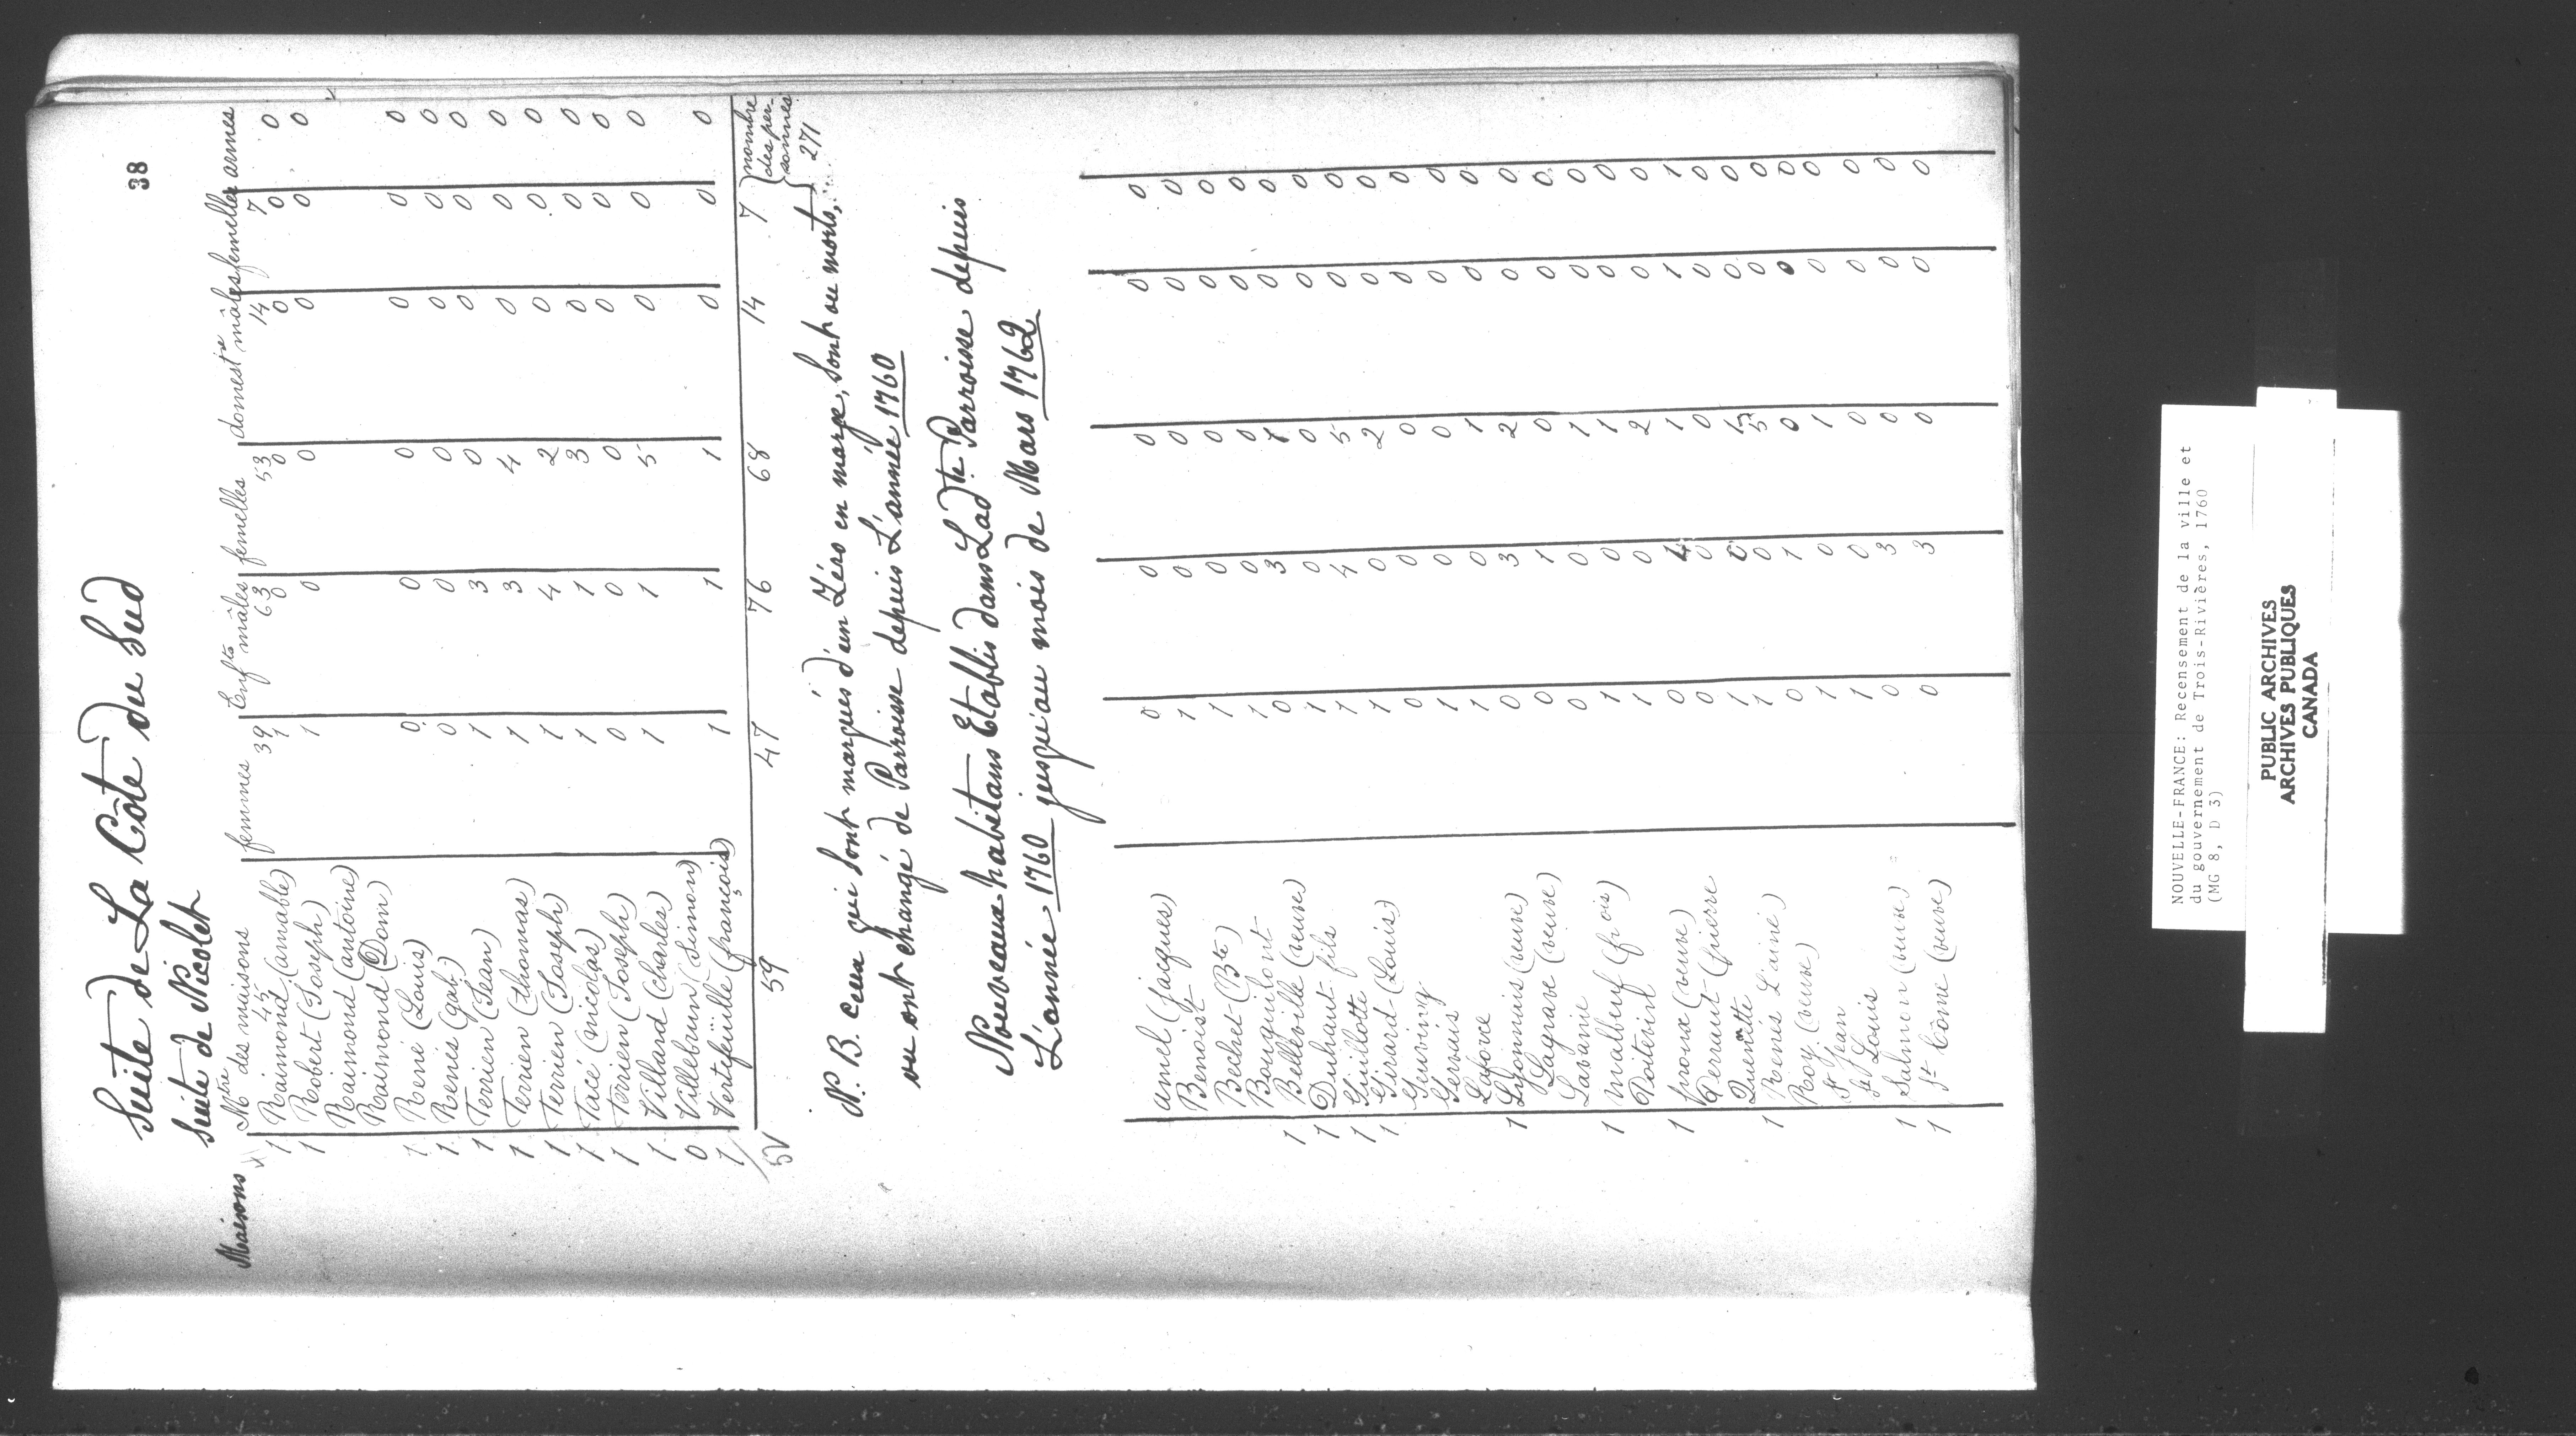 38
Suite de La Côte du Sud
Suite de Nicolet
Maisons Mtre des maisons femmes Enfts mâles femelles domestqs mâles femelles armes
45 39 63 53 14 7
1 Raimond (amable) 1 0 0 0 0 0
1 Robert (Joseph) 1 0 0 0 0 0
Raimond (antoine)
Raimond (Dom)
1 René (Louis) 0 0 0 0 0 0
1 Renés (gab:) 0 0 0 0 0 0
1 Terrien (Jean) 1 3 0 0 0 0
1 Terrien (thomas) 1 3 4 0 0 0
1 Terrien (Joseph) 1 4 2 0 0 0
1 Tacé (nicolas) 1 1 3 0 0 0
1 Terrien (Joseph) 0 0 0 0 0 0
1 Villard (Charles) 1 1 5 0 0 0
0 Villebrun (Simon)
1 Vertefeuille (françois) 1 1 1 0 0 0
59 47 76 68 14 7 nombre des personnes 271
N. B. ceux qui Sont marqués d'un Zéro en marge, Sont ou morts,
ou ont changé de Parroisse depuis L'année 1760
Nouveaux habitans Etablis dans Ladte Parroisse depuis
L'année 1760 jusqu'au mois de Mars 1762
amel (Jacques) 0 0 0 0 0
Benoist 1 0 0 0 0
Bechet (Bte) 1 0 0 0 0
Bouquilont 1 0 0 0 0
1 Belleville (veuve) 0 3 1 0 0
1 Duhaut fils 1 0 0 0 0
1 Guillotte 1 4 5 0 0
1 Girard (Louis) 1 0 2 0 0
Gauving 0 0 0 0 0
Gervais 1 0 0 0 0
Laforce 1 0 1 0 0
1 Lyonnais (veuve) 0 3 2 0 0
Lagrave (veuve) 0 1 0 0 0
Lavanie 0 0 1 0 0
1 malbeuf (frois) 1 0 1 0 0
Poitevin 1 0 2 0 0
1 proux (veuve) 0 4 1 1 1
Perraut (pierre 0 0 0 0 0
Quenette 1 0 1 0 0
1 Renés L'ainé) 1 0 5 0 0
Roy (veuve) 0 1 0 0 0
St Jean 1 0 1 0 0
St Louis 1 0 0 0 0
1 Salmon (veuve) 0 3 0 0 0
1 St Côme (veuve) 0 3 0 0 0
NOUVELLE-FRANCE: Recensement de la ville et
du gouvernement de Trois-Rivières, 1760
(MG 8, D 3)
PUBLIC ARCHIVES
ARCHIVES PUBLIQUES
CANADA